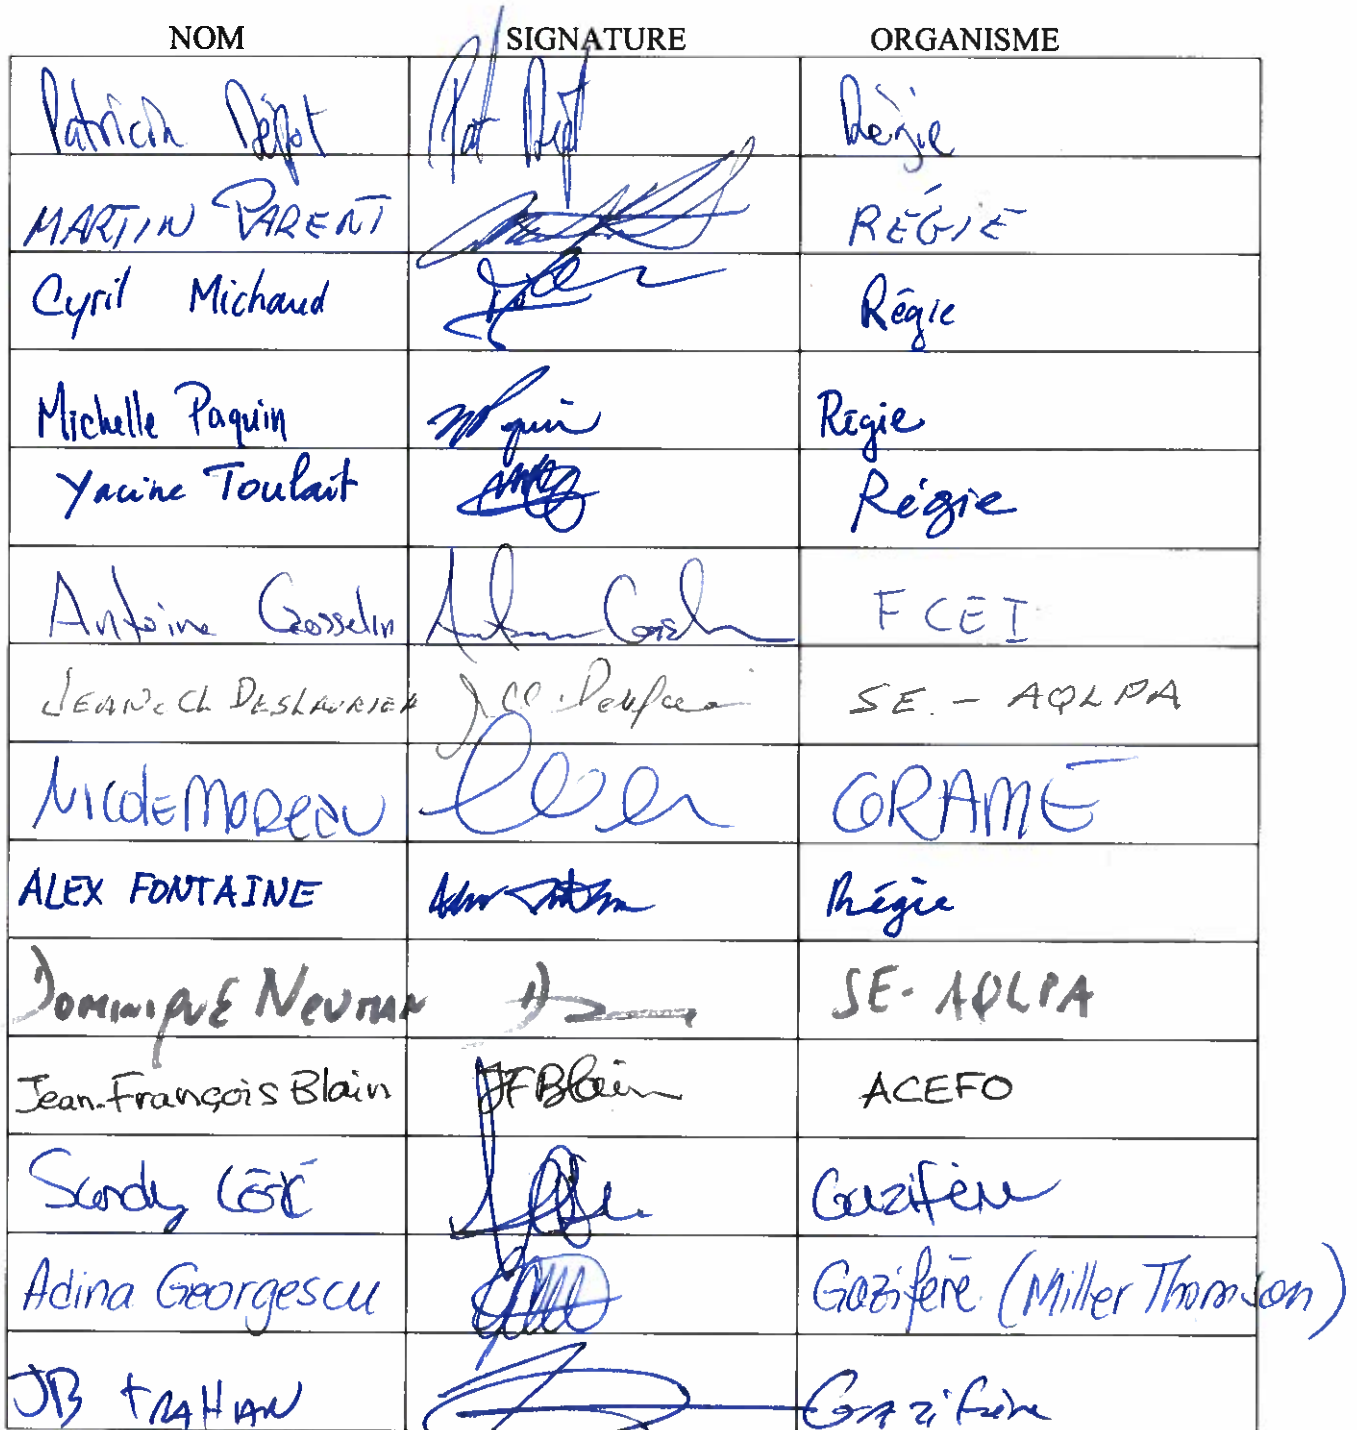 NOM SIGNATURE ORGANISME
Patricia Régie
MARTIN PARENT RÉGIE
Cyril Michaud Régie
Michelle Paquin MPaquin Régie
Yacine Toulait Régie
Antoine Gosselin FCEI
JEAN-CL DESLAURIER SE.-AQLPA
NICOLE MOREAU GRAME
ALEX FONTAINE Régie
DOMINIQUE NEUMAN SE-AQLPA
Jean-François Blain JFBlain ACEFO
Gazifère
Adina Georgescu Gazifère (Miller Thomson)
JB TRAHAN Gazifère